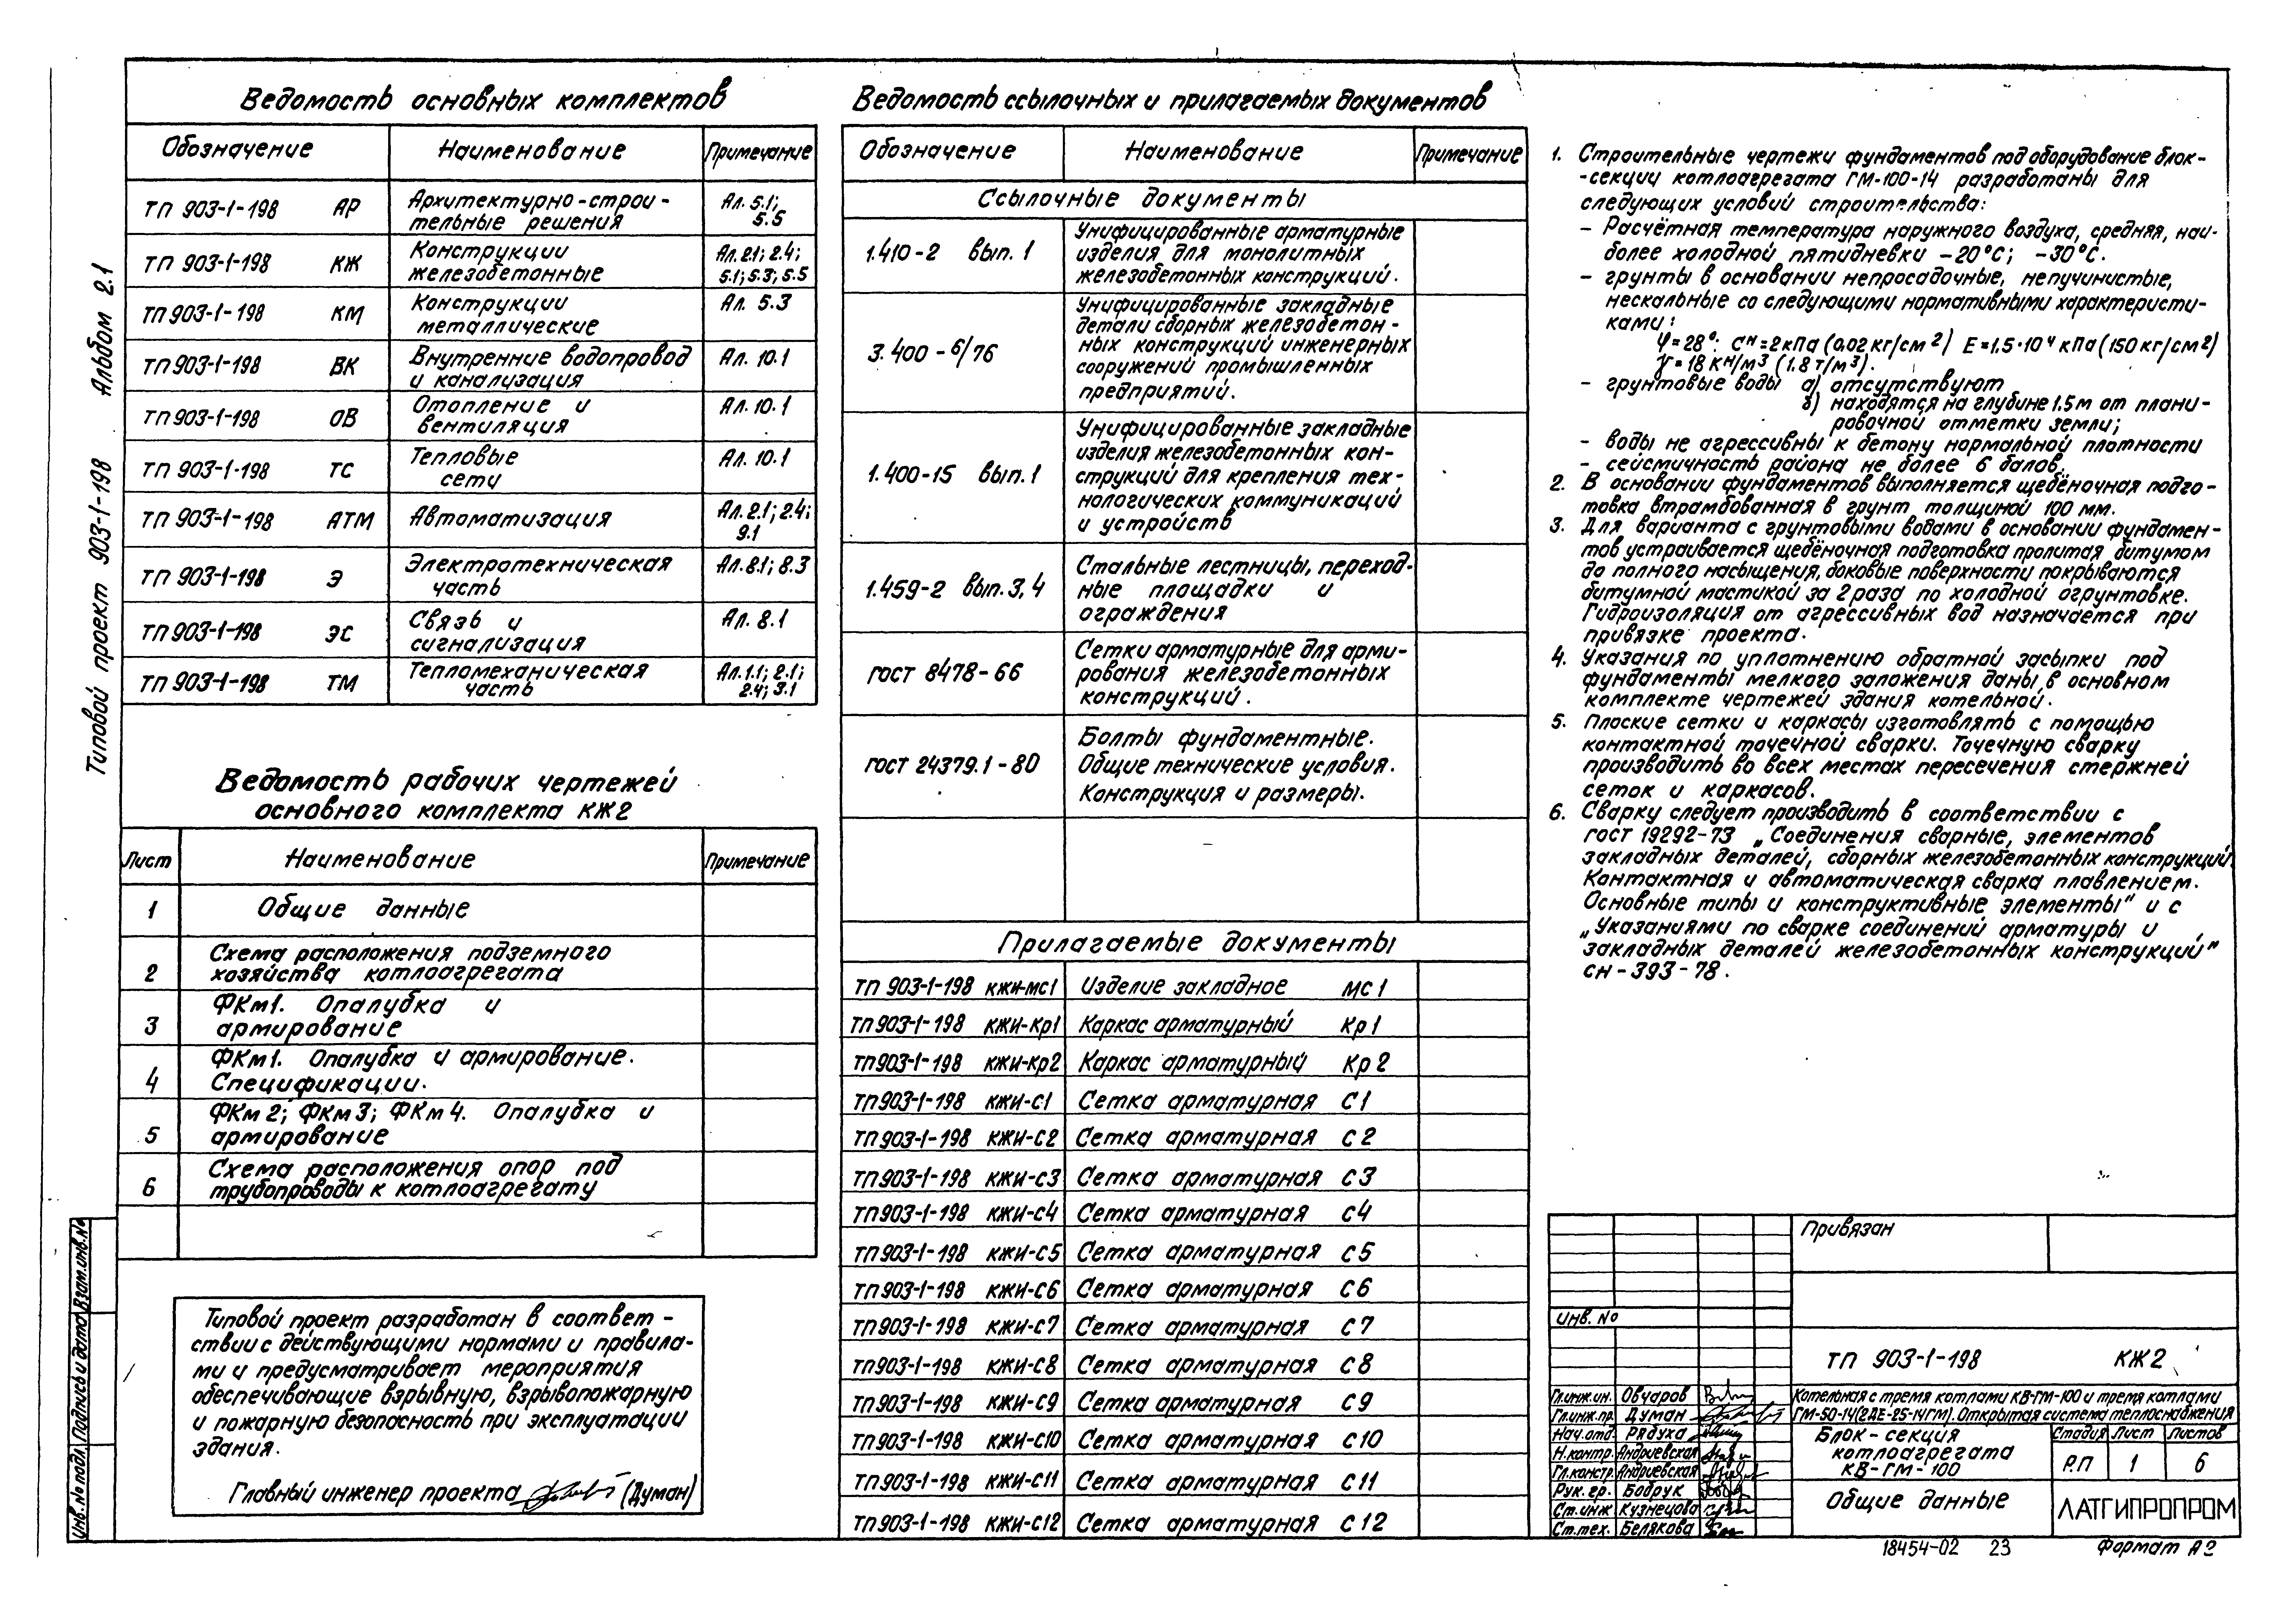 Типовой проект 903-1-198 Альбом 2.1
Ведомость основных комплектов
Обозначение Наименование Примечание
ТП 903-1-198 АР Архитектурно-строи- Ал. 5.1;
тельные решения 5.5
ТП 903-1-198 КЖ Конструкции Ал. 2.1; 2.4;
железобетонные 5.1; 5.3; 5.5
ТП 903-1-198 КМ Конструкции Ал. 5.3
металлические
ТП 903-1-198 ВК Внутренние водопровод Ал. 10.1
и канализация
ТП 903-1-198 ОВ Отопление и Ал. 10.1
вентиляция
ТП 903-1-198 ТС Тепловые Ал. 10.1
сети
ТП 903-1-198 АТМ Автоматизация Ал. 2.1; 2.4;
9.1
ТП 903-1-198 Э Электротехническая Ал. 8.1; 8.3
часть
ТП 903-1-198 ЭС Связь и Ал. 8.1
сигнализация
ТП 903-1-198 ТМ Тепломеханическая Ал. 1.1; 2.1;
часть 2.4; 3.1
Ведомость рабочих чертежей
основного комплекта КЖ2
Лист Наименование Примечание
1 Общие данные
Схема расположения подземного
2 хозяйства котлоагрегата
ФКм1. Опалубка и
3 армирование
ФКм1. Опалубка и армирование.
4 Спецификации.
ФКм2; ФКм3; ФКм4. Опалубка и
5 армирование
Схема расположения опор под
6 трубопроводы к котлоагрегату
Типовой проект разработан в соответ-
ствии с действующими нормами и правила-
ми и предусматривает мероприятия
обеспечивающие взрывную, взрывопожарную
и пожарную безопасность при эксплуатации
здания.
Главный инженер проекта (Думан)
Инв. № подл. Подпись и дата Взам. инв. №
Ведомость ссылочных и прилагаемых документов
Обозначение Наименование Примечание
Ссылочные документы
1.410-2 вып. 1 Унифицированные арматурные
изделия для монолитных
железобетонных конструкций.
3.400-6/76 Унифицированные закладные
детали сборных железобетон-
ных конструкций инженерных
сооружений промышленных
предприятий.
1.400-15 вып. 1 Унифицированные закладные
изделия железобетонных кон-
струкций для крепления тех-
нологических коммуникаций
и устройств
1.459-2 вып. 3, 4 Стальные лестницы, переход-
ные площадки и
ограждения
ГОСТ 8478-66 Сетки арматурные для арми-
рования железобетонных
конструкций.
ГОСТ 24379.1-80 Болты фундаментные.
Общие технические условия.
Конструкция и размеры.
Прилагаемые документы
ТП 903-1-198 КЖИ-МС1 Изделие закладное МС1
ТП 903-1-198 КЖИ-Кр1 Каркас арматурный Кр1
ТП 903-1-198 КЖИ-Кр2 Каркас арматурный Кр2
ТП 903-1-198 КЖИ-С1 Сетка арматурная С1
ТП 903-1-198 КЖИ-С2 Сетка арматурная С2
ТП 903-1-198 КЖИ-С3 Сетка арматурная С3
ТП 903-1-198 КЖИ-С4 Сетка арматурная С4
ТП 903-1-198 КЖИ-С5 Сетка арматурная С5
ТП 903-1-198 КЖИ-С6 Сетка арматурная С6
ТП 903-1-198 КЖИ-С7 Сетка арматурная С7
ТП 903-1-198 КЖИ-С8 Сетка арматурная С8
ТП 903-1-198 КЖИ-С9 Сетка арматурная С9
ТП 903-1-198 КЖИ-С10 Сетка арматурная С10
ТП 903-1-198 КЖИ-С11 Сетка арматурная С11
ТП 903-1-198 КЖИ-С12 Сетка арматурная С12
1. Строительные чертежи фундаментов под оборудование блок-
-секции котлоагрегата ГМ-100-14 разработаны для
следующих условий строительства:
- Расчётная температура наружного воздуха, средняя, наи-
более холодной пятидневки -20°С; -30°С.
- грунты в основании непросадочные, непучинистые,
нескальные со следующими нормативными характеристи-
ками:
φ=28°; Cн=2кПа (0,02 кг/см²) E=1.5·10⁴ кПа (150 кг/см²)
γ=18 кН/м³ (1.8 т/м³).
- грунтовые воды а) отсутствуют
б) находятся на глубине 1.5м от плани-
ровочной отметки земли;
- воды не агрессивны к бетону нормальной плотности
- сейсмичность района не более 6 балов.
2. В основании фундаментов выполняется щебёночная подго-
товка втрамбованная в грунт толщиной 100 мм.
3. Для варианта с грунтовыми водами в основании фундамен-
тов устраивается щебёночная подготовка пролитая битумом
до полного насыщения, боковые поверхности покрываются
битумной мастикой за 2 раза по холодной огрунтовке.
Гидроизоляция от агрессивных вод назначается при
привязке проекта.
4. Указания по уплотнению обратной засыпки под
фундаменты мелкого заложения даны в основном
комплекте чертежей здания котельной.
5. Плоские сетки и каркасы изготовлять с помощью
контактной точечной сварки. Точечную сварку
производить во всех местах пересечения стержней
сеток и каркасов.
6. Сварку следует производить в соответствии с
ГОСТ 19292-73 „Соединения сварные, элементов
закладных деталей, сборных железобетонных конструкций.
Контактная и автоматическая сварка плавлением.
Основные типы и конструктивные элементы" и с
„Указаниями по сварке соединений арматуры и
закладных деталей железобетонных конструкций"
СН-393-78.
Привязан
Инв. №
ТП 903-1-198 КЖ2
Гл.инж.ин. Овчаров
Гл.инж.пр. Думан
Нач.отд. Рядуха
Н.контр. Андриевская
Гл.констр. Андриевская
Рук. гр. Бодрук
Ст.инж Кузнецова
Ст.тех. Белякова
Котельная с тремя котлами КВ-ГМ-100 и тремя котлами
ГМ-50-14(2ДЕ-25-14ГМ). Открытая система теплоснабжения
Блок-секция
котлоагрегата
КВ-ГМ-100
Стадия Лист Листов
Р.П 1 6
Общие данные
ЛАТГИПРОПРОМ
18454-02 23 Формат А2